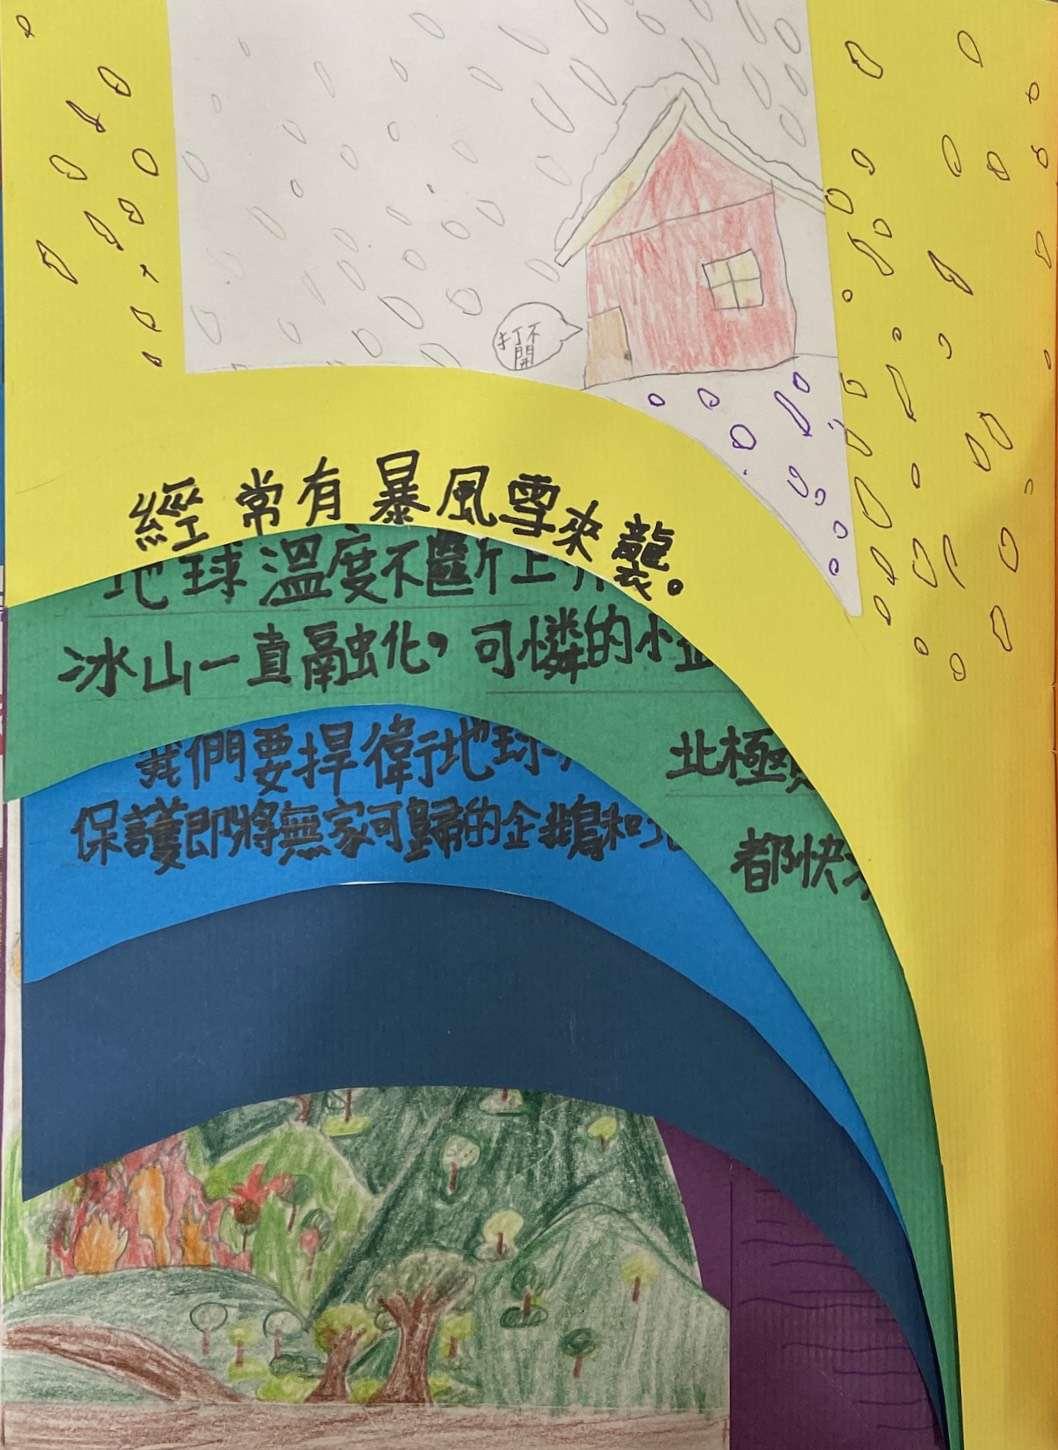 打不
開
經常有暴風雪來襲。
地球溫度不斷上升
冰山一直融化，可憐的小企
北極
都快
我們要捍衛地球
保護即將無家可歸的企鵝和北